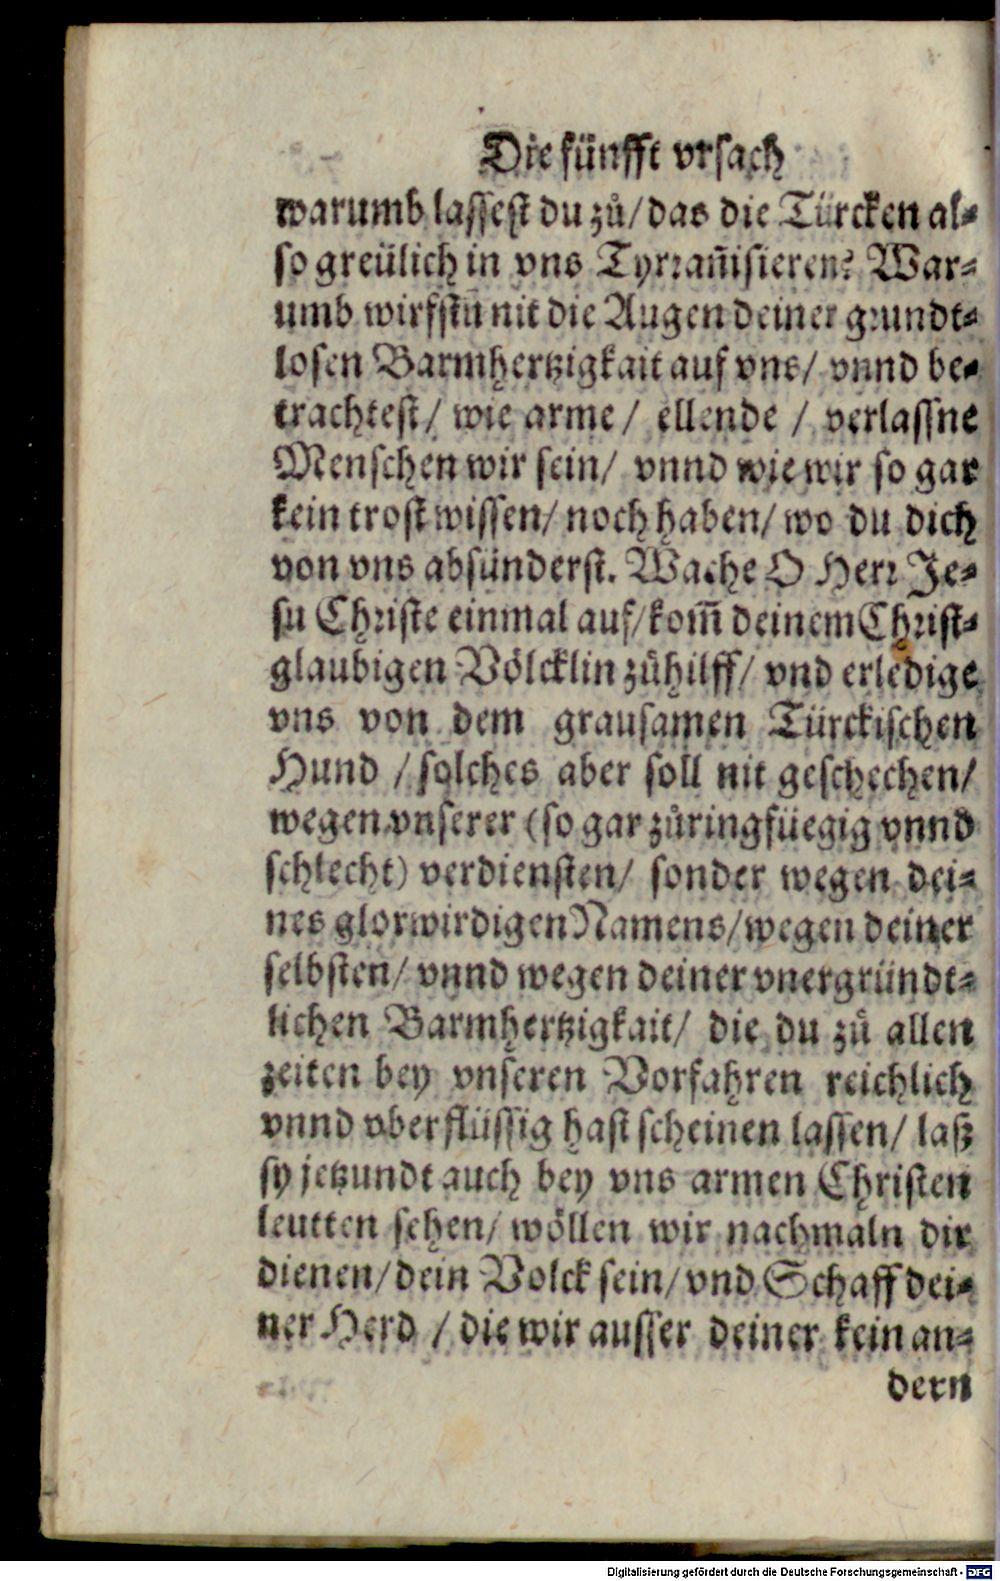 Die fünfft vrsach
warumb lassest du zů/ das die Türcken al⸗
so greülich in vns Tyrrañisieren? War⸗
umb wirfstu nit die Augen deiner grundt⸗
losen Barmhertzigkait auf vns/ vnnd be⸗
trachtest/ wie arme/ ellende / verlassne
Menschen wir sein/ vnnd wie wir so gar
kein trost wissen/ noch haben/ wo du dich
von vns absünderst. Wache O Herr Je⸗
su Christe einmal auf/ kom̃ deinem Christ⸗
glaubigen Völcklin zůhilff/ vnd erledige
vns von dem grausamen Türckischen
Hund / solches aber soll nit geschechen/
wegen vnserer (so gar zůringfüegig vnnd
schlecht) verdiensten/ sonder wegen dei⸗
nes glorwirdigen Namens/ wegen deiner
selbsten/ vnnd wegen deiner vnergründt⸗
lichen Barmhertzigkait/ die du zů allen
zeiten bey vnseren Vorfahren reichlich
vnnd vberflüssig hast scheinen lassen/ laß
sy jetzundt auch bey vns armen Christen
leutten sehen/ wöllen wir nachmaln dir
dienen/ dein Volck sein/ vnd Schaff dei⸗
ner Herd / die wir ausser deiner kein an⸗
dern
Digitalisierung gefördert durch die Deutsche Forschungsgemeinschaft - DFG